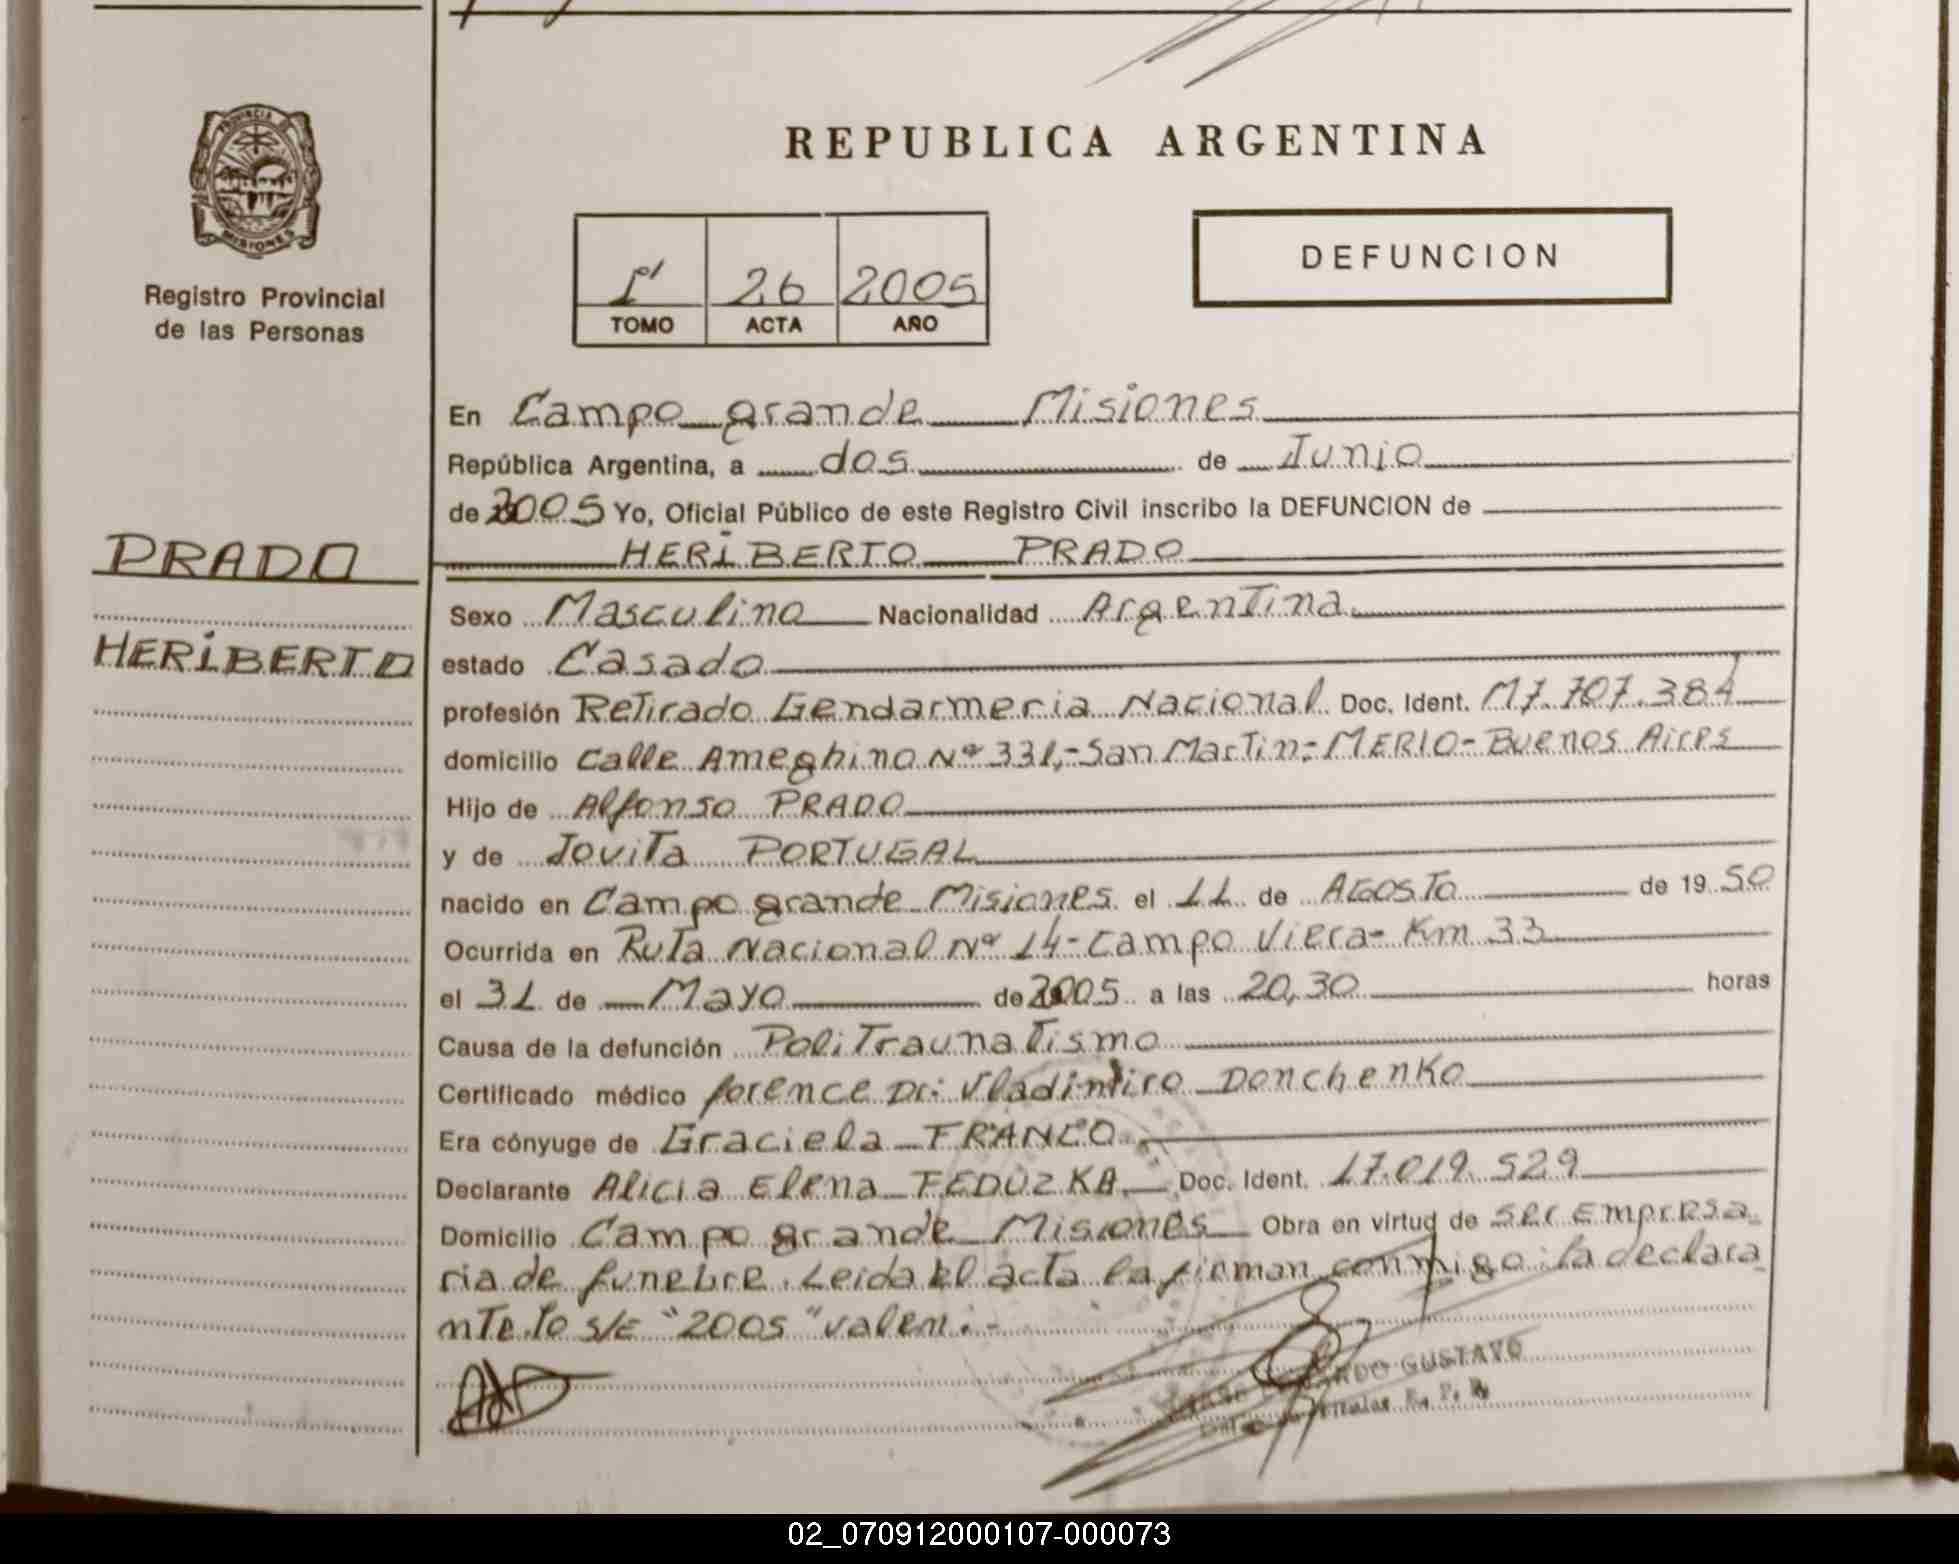 PROVINCIA DE
MISIONES
Registro Provincial
de las Personas
REPUBLICA ARGENTINA
1º 26 2005
TOMO ACTA AÑO
DEFUNCION
En Campo grande Misiones
República Argentina, a dos de Junio
de 2005 Yo, Oficial Público de este Registro Civil inscribo la DEFUNCION de
HERIBERTO PRADO
PRADO
HERIBERTO
Sexo Masculino Nacionalidad Argentina
estado Casado
profesión Retirado Gendarmeria Nacional Doc. Ident. M7.707.384
domicilio Calle Ameghino Nº 331,-San Martin-MERLO-Buenos Aires
Hijo de Alfonso PRADO
y de Jovita PORTUGAL
nacido en Campo grande Misiones el 11 de AGOSTO de 19 50
Ocurrida en Ruta Nacional Nº 14-Campo Viera-Km 33
el 31 de Mayo de 2005 a las 20,30 horas
Causa de la defunción PoliTraunatismo
Certificado médico forence Dr: Vladimiro Donchenko
Era cónyuge de Graciela FRANCO
Declarante Alicia Elena FEDUZKA Doc. Ident. 17.019.529
Domicilio Campo grande Misiones Obra en virtud de ser Empresa
ria de funebre. Leida el acta la firman conmigo: la declara
nte. lo s/E "2005" valen.-
GUSTAVO
02_070912000107-000073